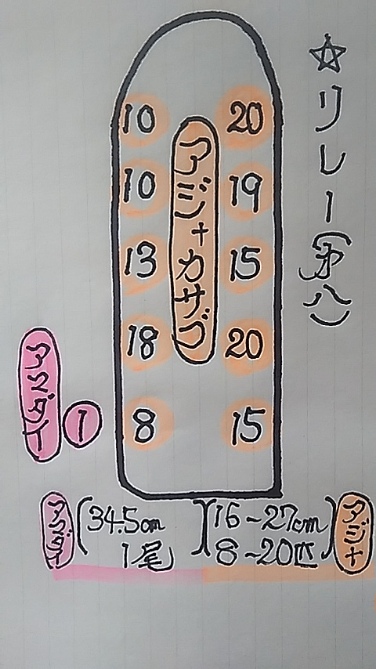 ☆リレー(第八)
10 20
10 19
13 15
18 20
8 15
アジ+カサゴ
アマダイ
1
アマダイ(34.5cm
1尾)
(16~27cm
8~20匹)
アジ+